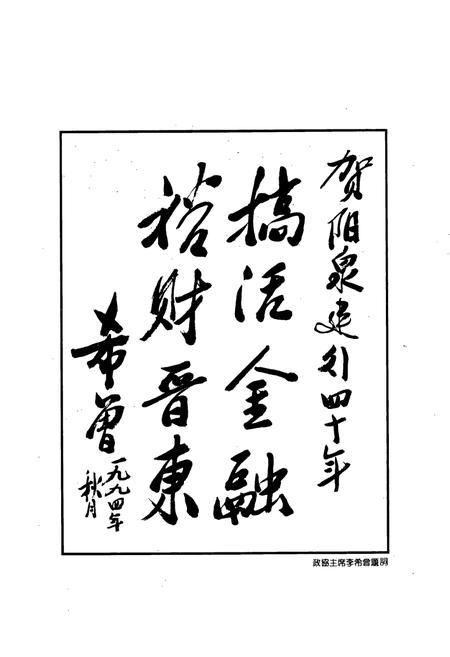 贺阳泉建行四十年
搞活金融
裕财晋東
希曾
一九九四年
秋月
政協主席李希曾題詞